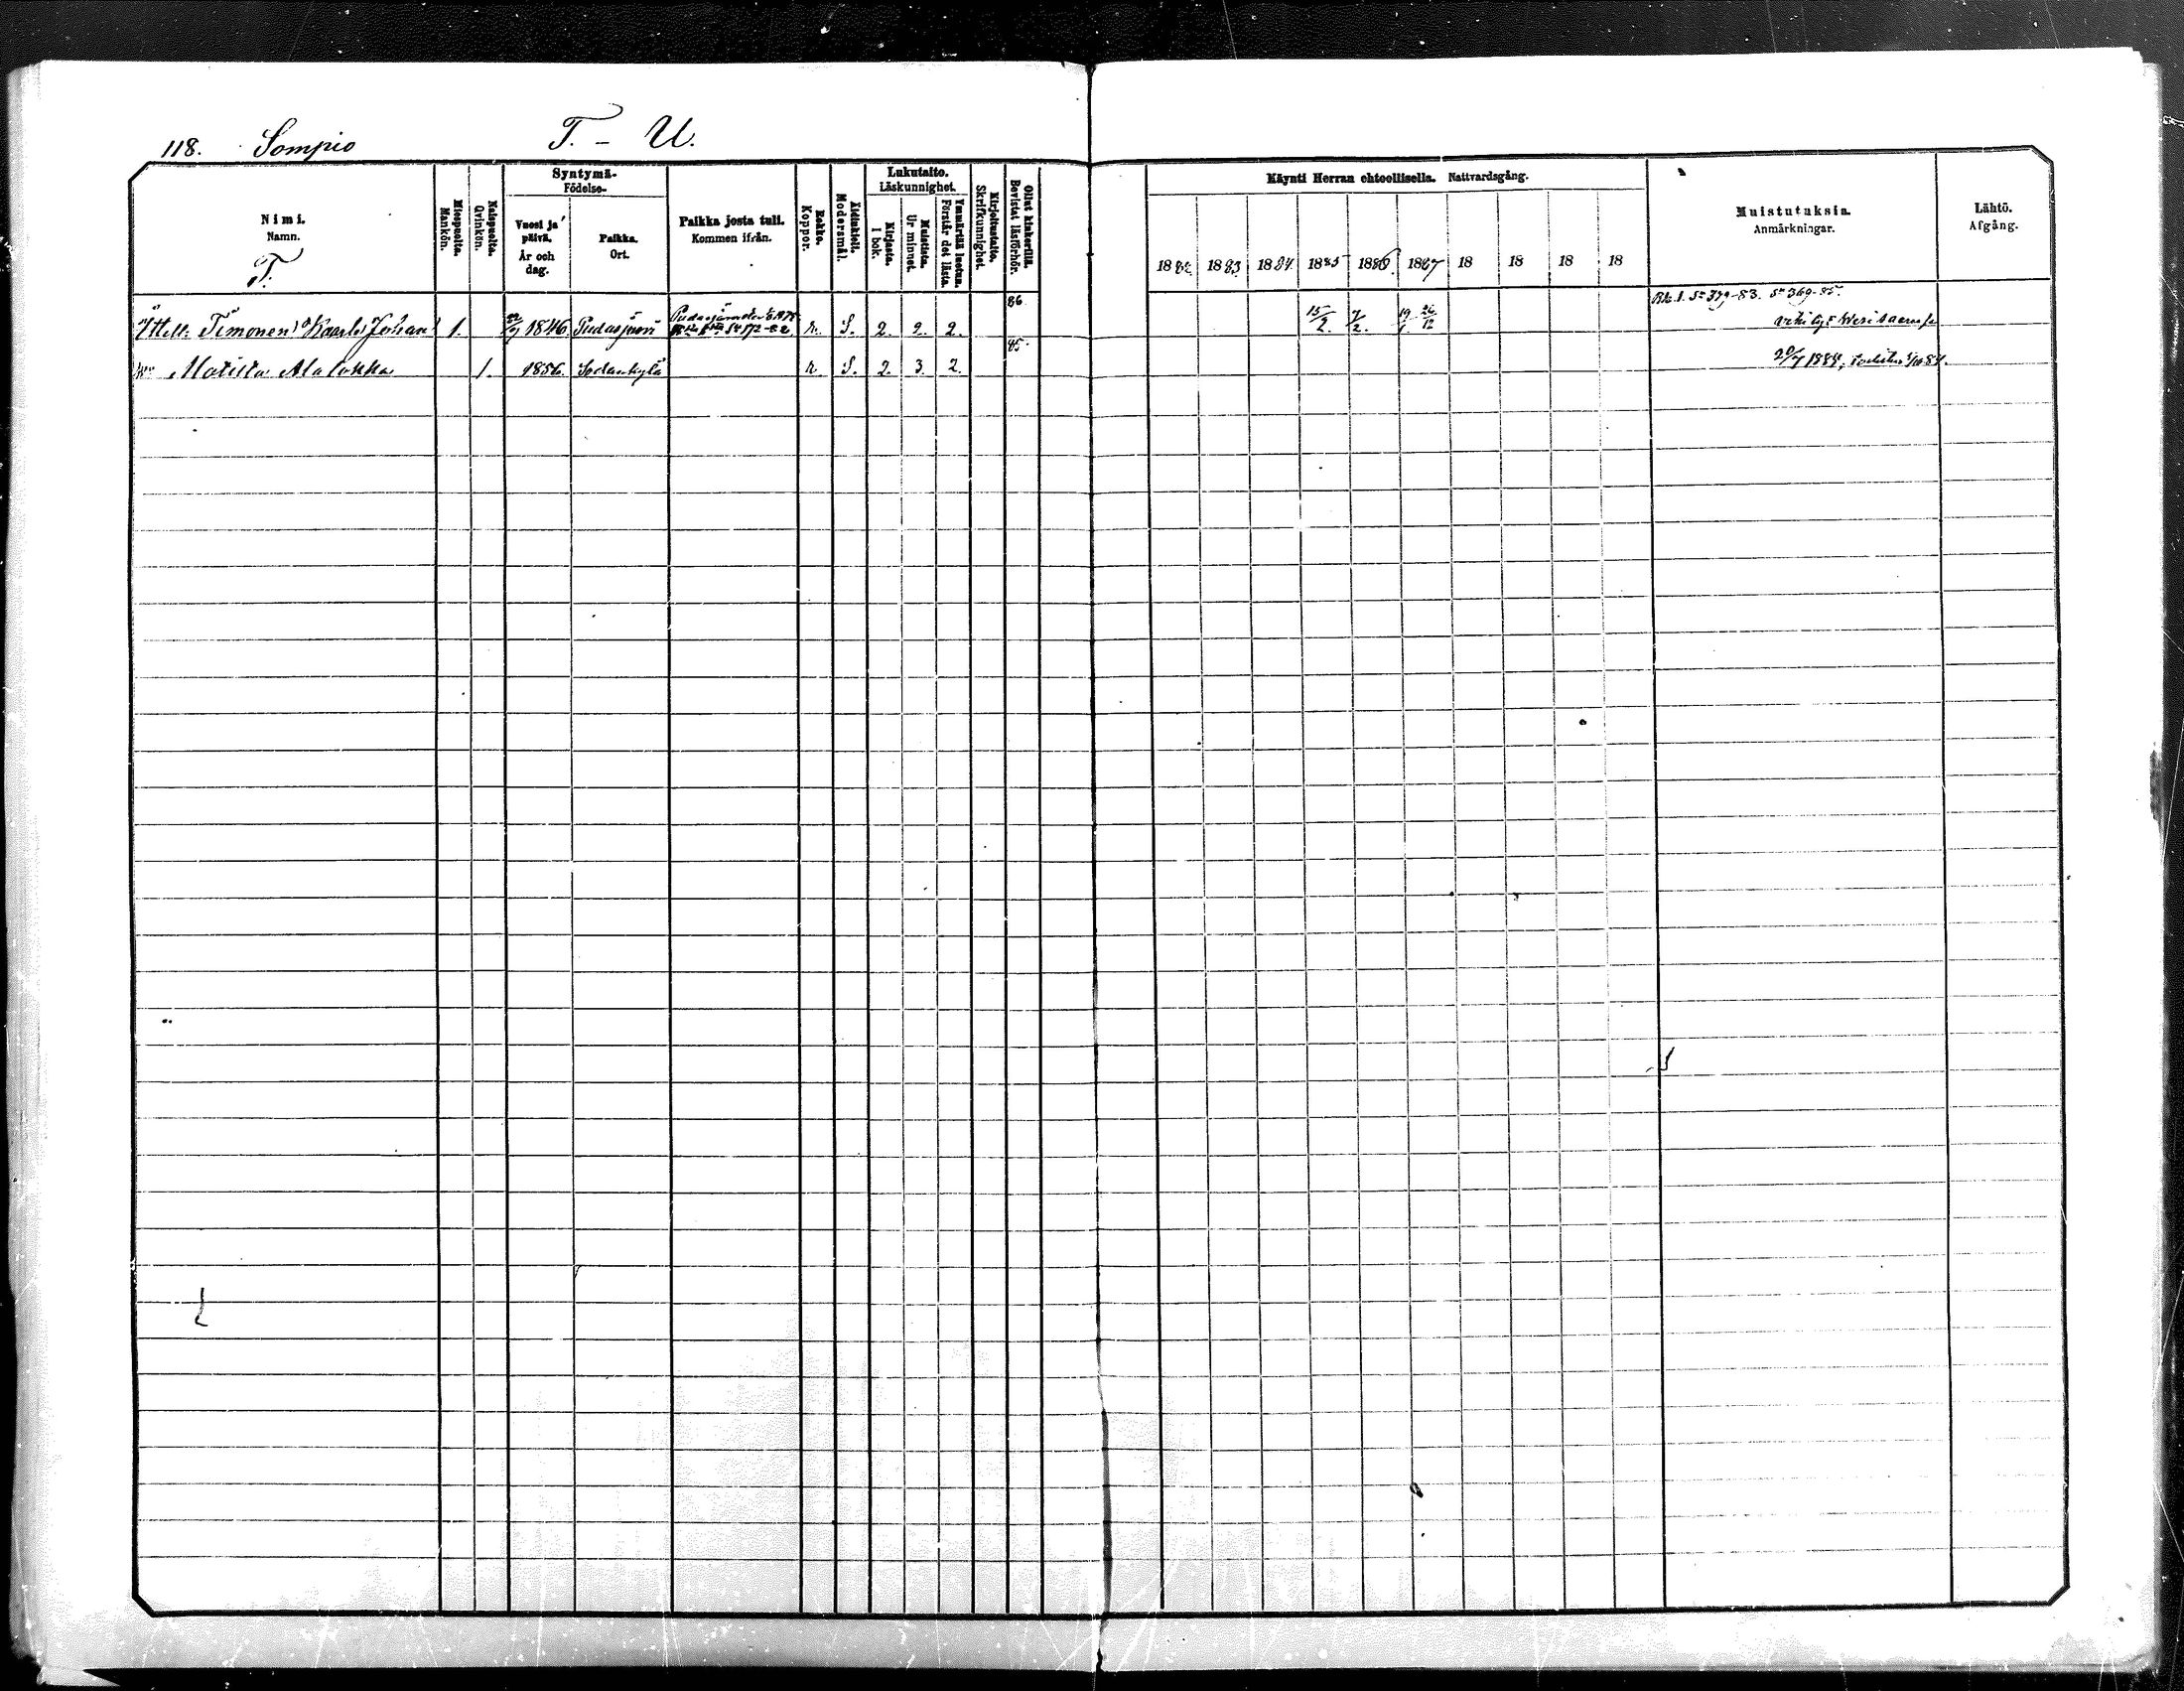 118. Sompio T. - U.
Nimi.
Namn.
T.
Miespuolta.
Mankön.
Naispuolta.
Qvinkön.
Syntymä-
Födelse-
Vuosi ja
päivä.
År och
dag.
Paikka.
Ort.
Paikka josta tuli.
Kommen ifrån.
Rokko.
Koppor.
Äidinkieli.
Modersmål.
Lukutaito.
Läskunnighet.
Kirjasta.
I bok.
Muistista.
Ur minnet.
Ymmärtää luetun.
Förstår det lästa.
Kirjoitustaito.
Skrifkunnighet.
Ollut kinkerillä.
Bevistat läsförhör.
Käynti Herran ehtoollisella. Nattvardsgång.
1882 1883 1884 1885 1886. 1887 18 18 18 18
Muistutuksia.
Anmärkningar.
Lähtö.
Afgång.
Timonen Kaarlo Johan 1. 1846 Pudasjärvi r. S. 2. 2. 2. 86 15/2. 7/2. 19/1. 26/12
379-83. 369-85.
Matilda Alalokka 1. 1856. Sodankylä r. S. 2. 3. 2. 85 20/7 1884,